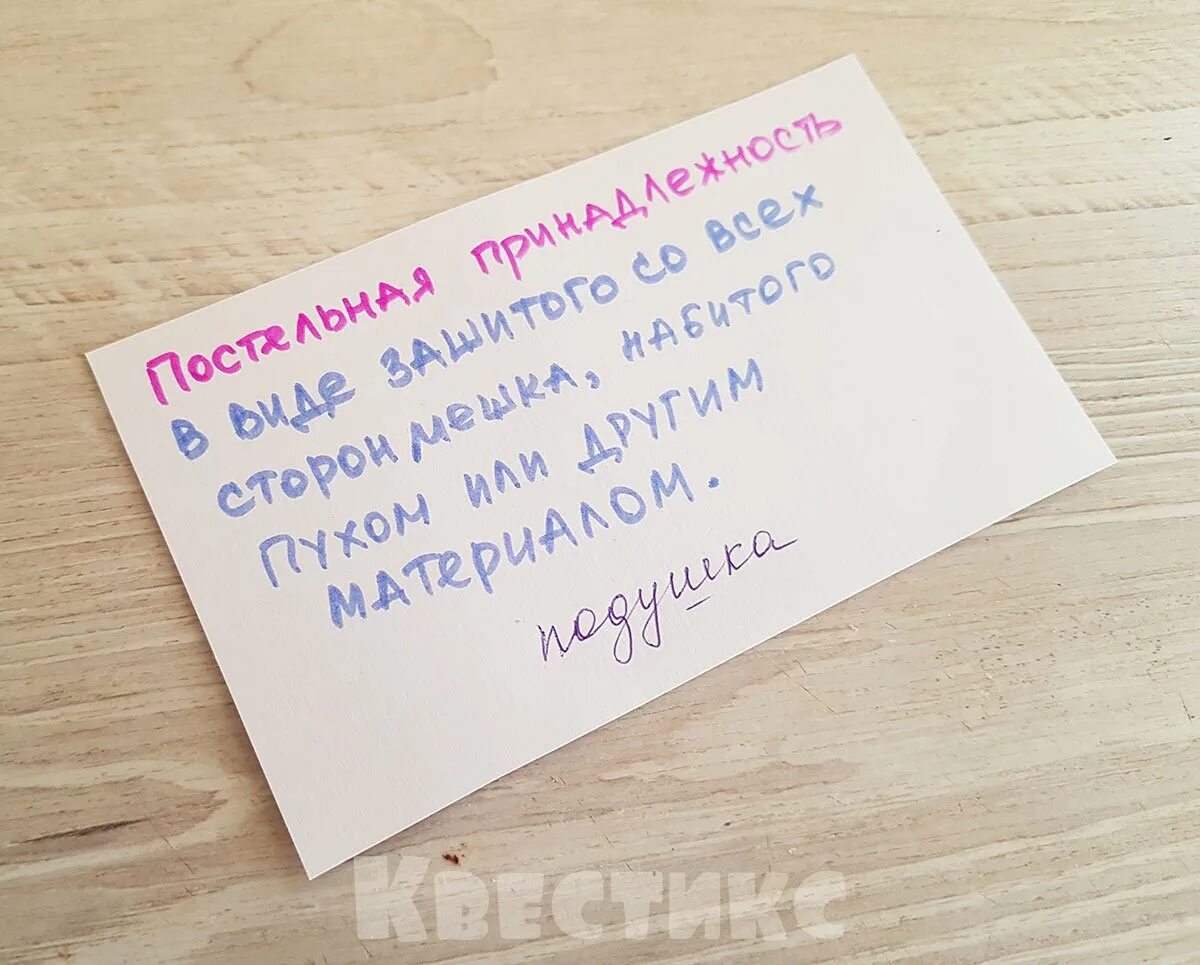 Постельная принадлежность
в виде зашитого со всех
сторон мешка, набитого
пухом или другим
материалом.
подушка
Квестикс